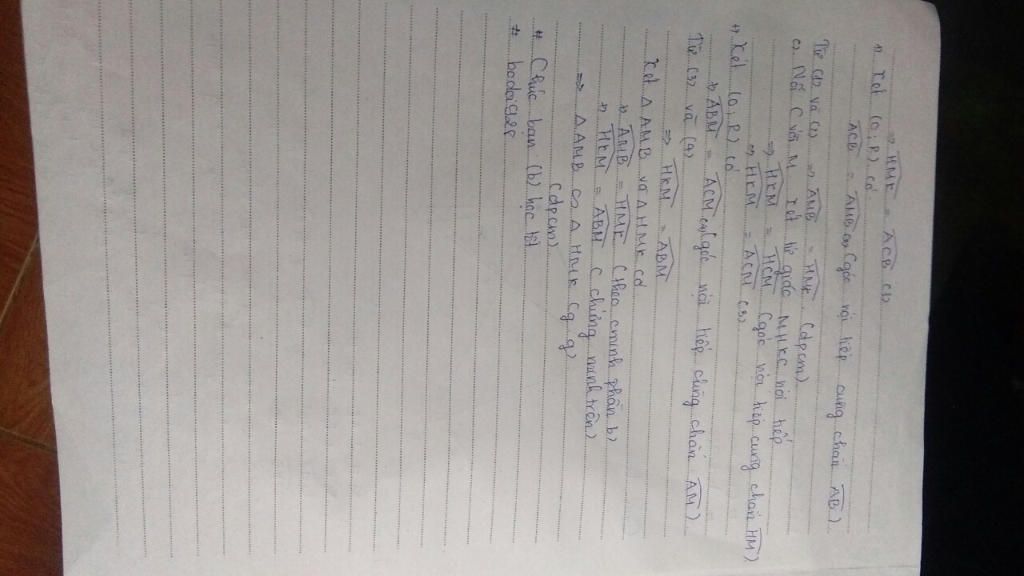 ⇒ HMK = ACB (1)
+) Xét (O; R) có
ACB = AMB (2) (góc nội tiếp cùng chắn AB)
Từ (1) và (2) ⇒ AMB = HMK (đpcm)
c) Nối C với M xét tứ giác MHKC nội tiếp
⇒ HKM = HCM (góc nội tiếp cùng chắn HM)
⇒ HKM = ACM (3)
+) Xét (O; R) có
⇒ ABM = ACM (4) (góc nội tiếp cùng chắn AM)
Từ (3) và (4)
⇒ HKM = ABM
Xét Δ AMB và Δ HMK có
+) AMB = HMK (theo cminh phần b)
+) HKM = ABM (chứng minh trên)
⇒ Δ AMB ∽ Δ HMK (g.g)
(đpcm)
# Chúc bạn (b) học tốt
#